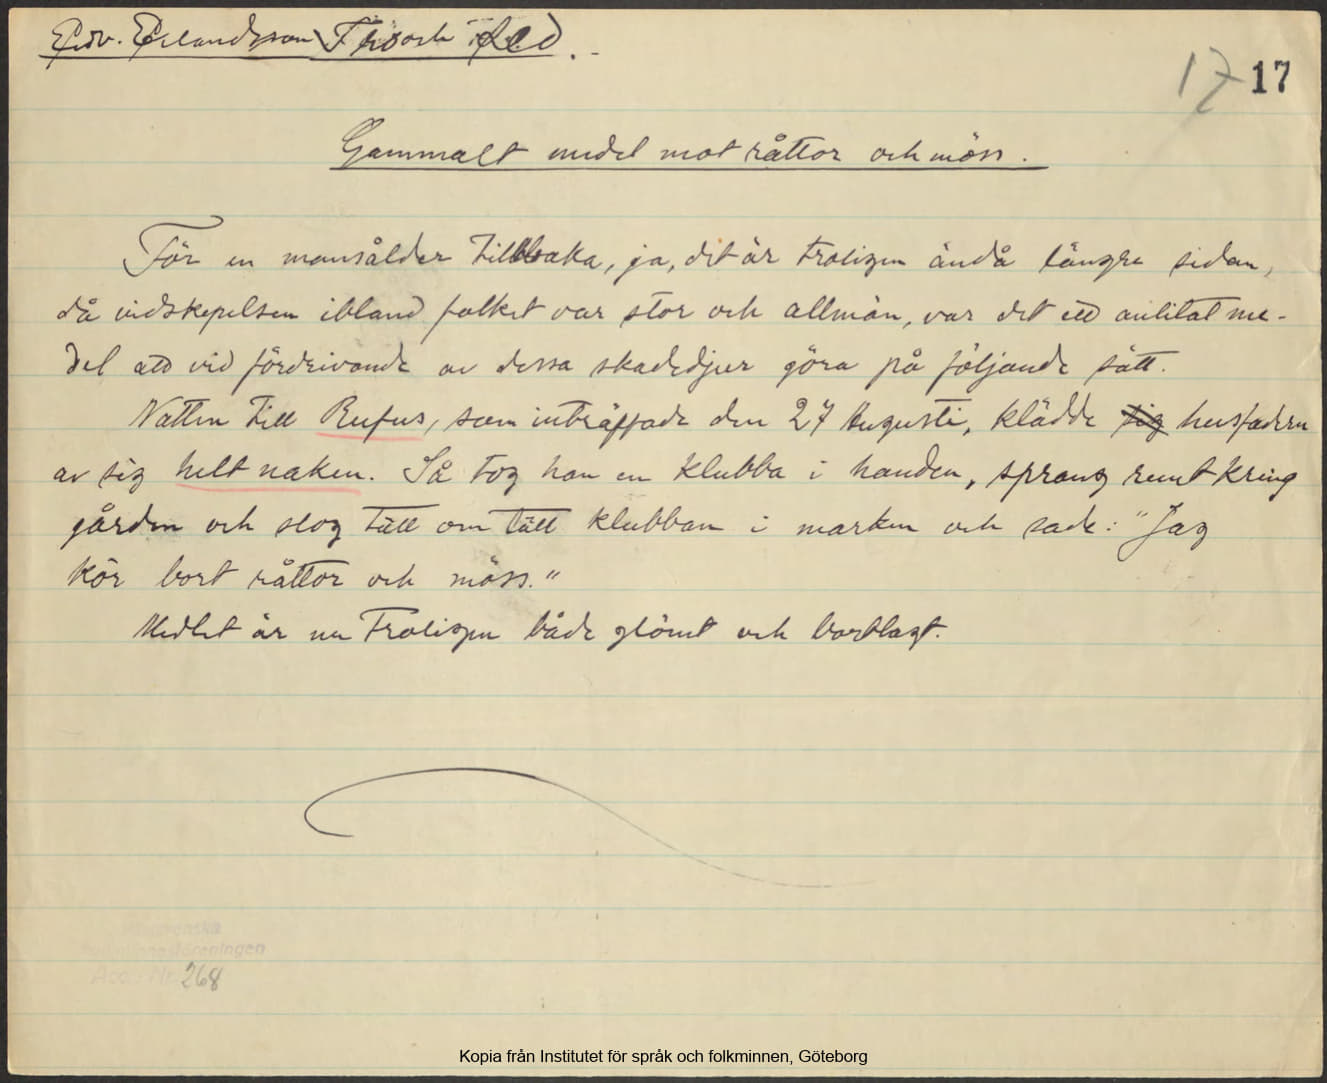 Edv. Erlandsson
17 17
Gammalt medel mot råttor och möss.
För en mansålder tillbaka, ja, det är troligen ändå längre sidan,
då vidskepelsen ibland folket var stor och allmän, var det ett anlitat me-
del att vid fördrivande av dessa skadedjur göra på följande sätt.
Natten till Rufus, som inträffade den 27 Augusti, klädde sig husfadern
av sig helt naken. Så tog han en klubba i handen, sprang runt kring
gården och slog tätt om tätt klubban i marken och sade: "Jag
kör bort råttor och möss."
Medlet är nu troligen både glömt och bortlagt.
Västsvenska
folkminnesföreningen
Acc. Nr. 268
Kopia från Institutet för språk och folkminnen, Göteborg